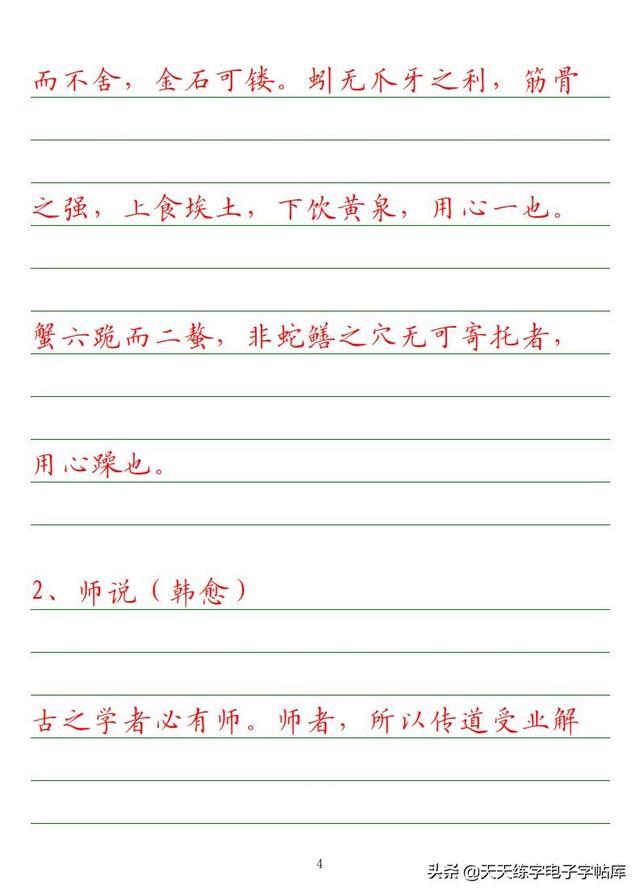 而不舍，金石可镂。蚓无爪牙之利，筋骨
之强，上食埃土，下饮黄泉，用心一也。
蟹六跪而二螯，非蛇鳝之穴无可寄托者，
用心躁也。
2、师说（韩愈）
古之学者必有师。师者，所以传道受业解
4
头条 @天天练字电子字帖库